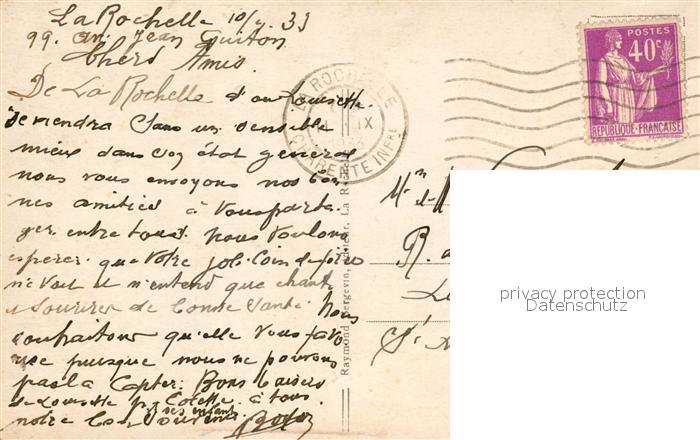 La Rochelle 10/9. 33
99. av. Jean Guiton
Chers Amis
De La Rochelle d'où Louisette
reviendra sans un sensible
mieux dans son état general
nous vous envoyons nos bon
nes amitiés à vous parta
ger entre tous. Nous voulons
esperer que votre joli coin de
ne voit et n'entend que chants
et sourires de bonne santé. Nous
souhaitons qu'elle vous favo
rise puisque nous ne pouvons
pas la capter. Bons baisers
de Louisette pr Colette à tous
et ses enfants
notre bon souvenir.
POSTES
40c
REPUBLIQUE FRANÇAISE
LA ROCHELLE
IX
CHARENTE INFRE
Raymond Bergevin, éditeur, La R
Mr
et M
R.
privacy protection
Datenschutz